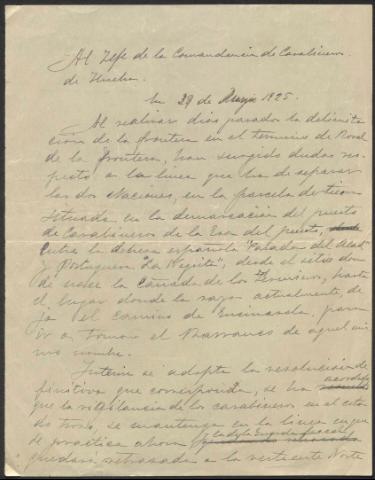 Al Jefe de la Comandancia de Carabineros
de Huelva.
En 29 de Mayo 1925.
Al realizar dias pasados la delimita
cion de la frontera en el termino de Rosal
de la frontera, han surgido dudas res-
pecto a la linea que ha de separar
las dos Naciones, en la parcela de tierra
situada en la demarcacion del puesto
de Carabineros de la
entre la dehesa española
y Portuguesa desde el sitio don
de nace la Cañada de los hasta
el lugar donde la raya actualmente, de
ja el camino de Encinasola, para
ir a tomar el Barranco de aquel mis
mo nombre.
Interin se adopta la resolución de
finitiva que corresponda, se ha acordado
que la vigilancia de los carabineros en el cita
do trozo, se mantenga en la linea en que
se practica ahora
quedará retrasada a la vertiente Norte